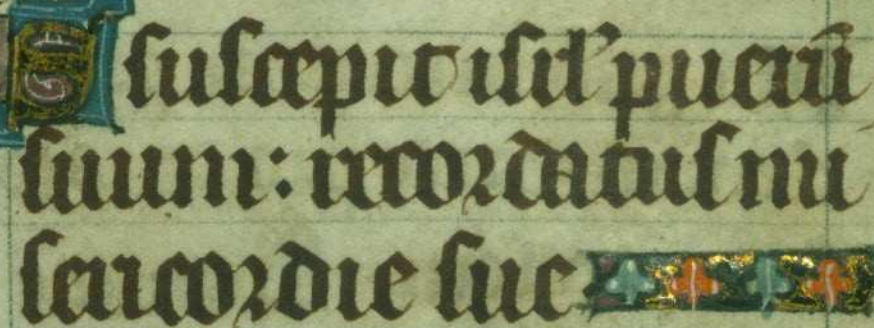 Suscepit isrl' puerū
suum: recordatus mi
sericordie sue